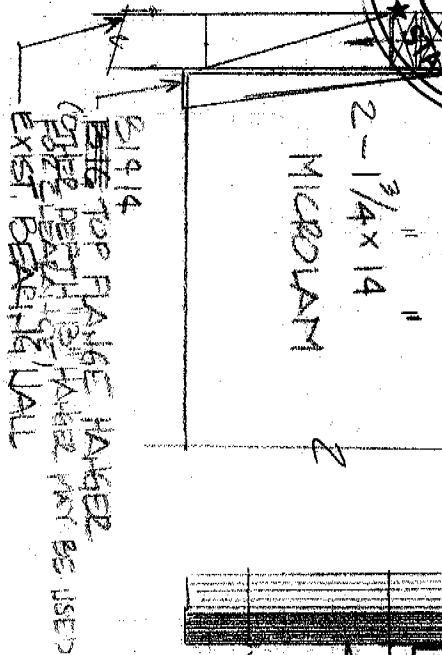 2 - 1 3/4" x 14"
MICROLAM
B1414
TOP FLANGE HANGER
(OTHER DEPTH "B" HANGER MAY BE USED
EXIST. BEARING WALL